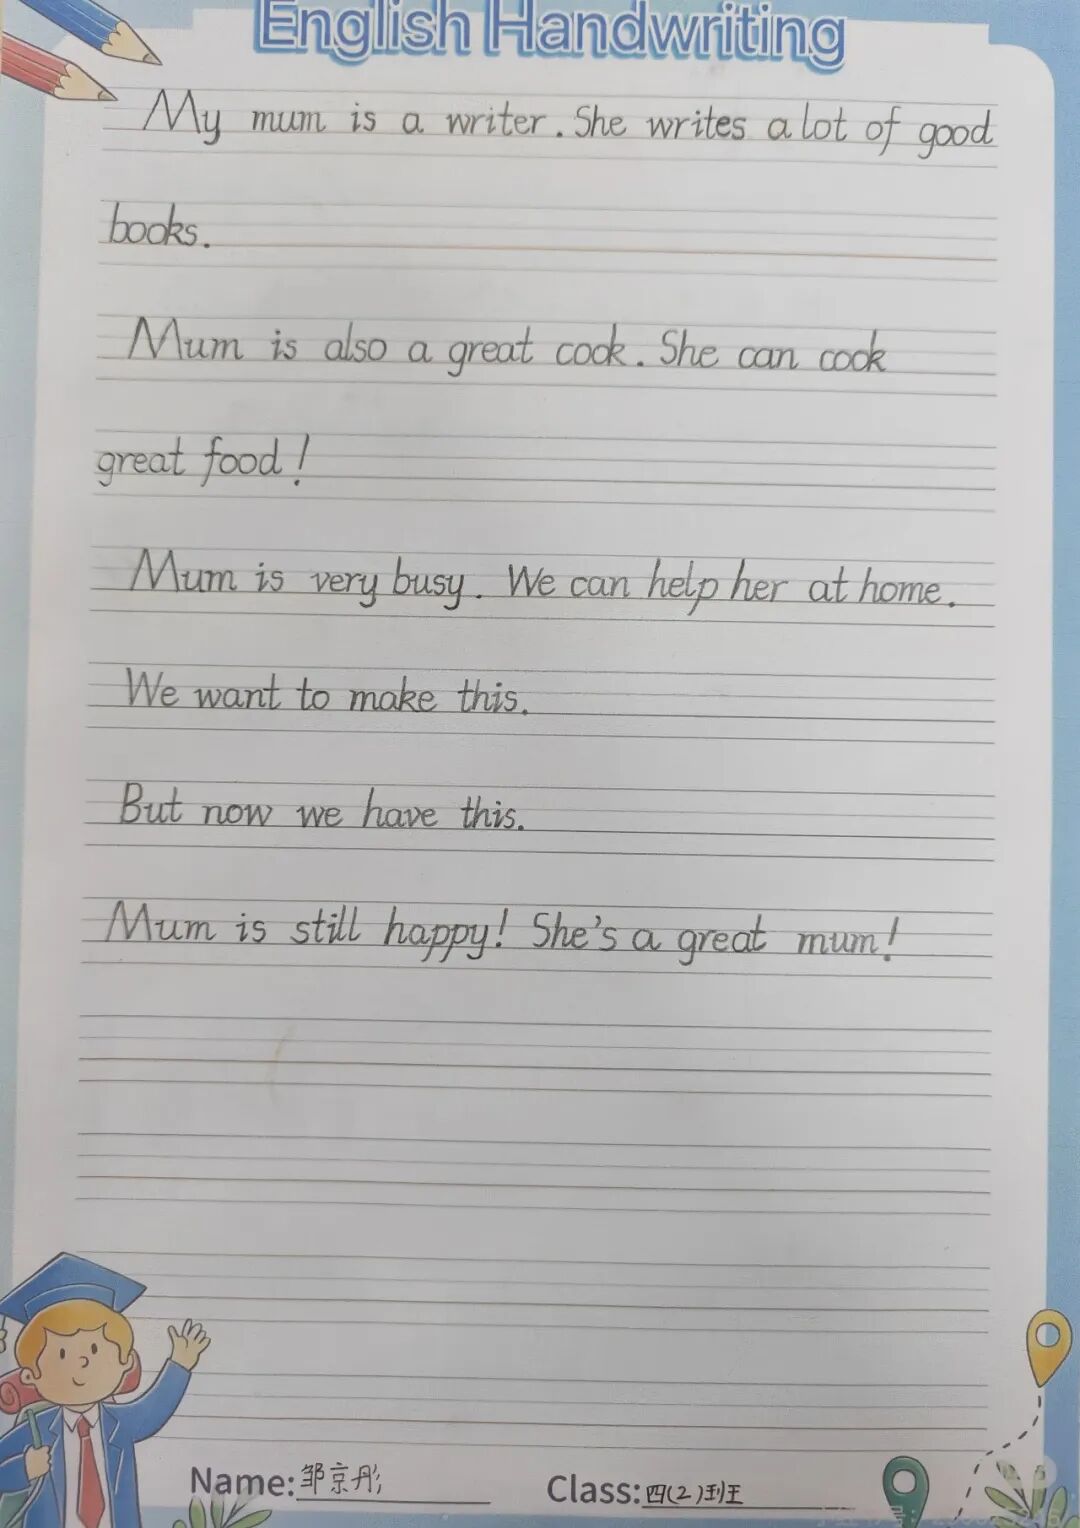 English Handwriting
My mum is a writer. She writes a lot of good
books.
Mum is also a great cook. She can cook
great food!
Mum is very busy. We can help her at home.
We want to make this.
But now we have this.
Mum is still happy! She's a great mum!
Name: 邹京彤 Class: 四(2)班